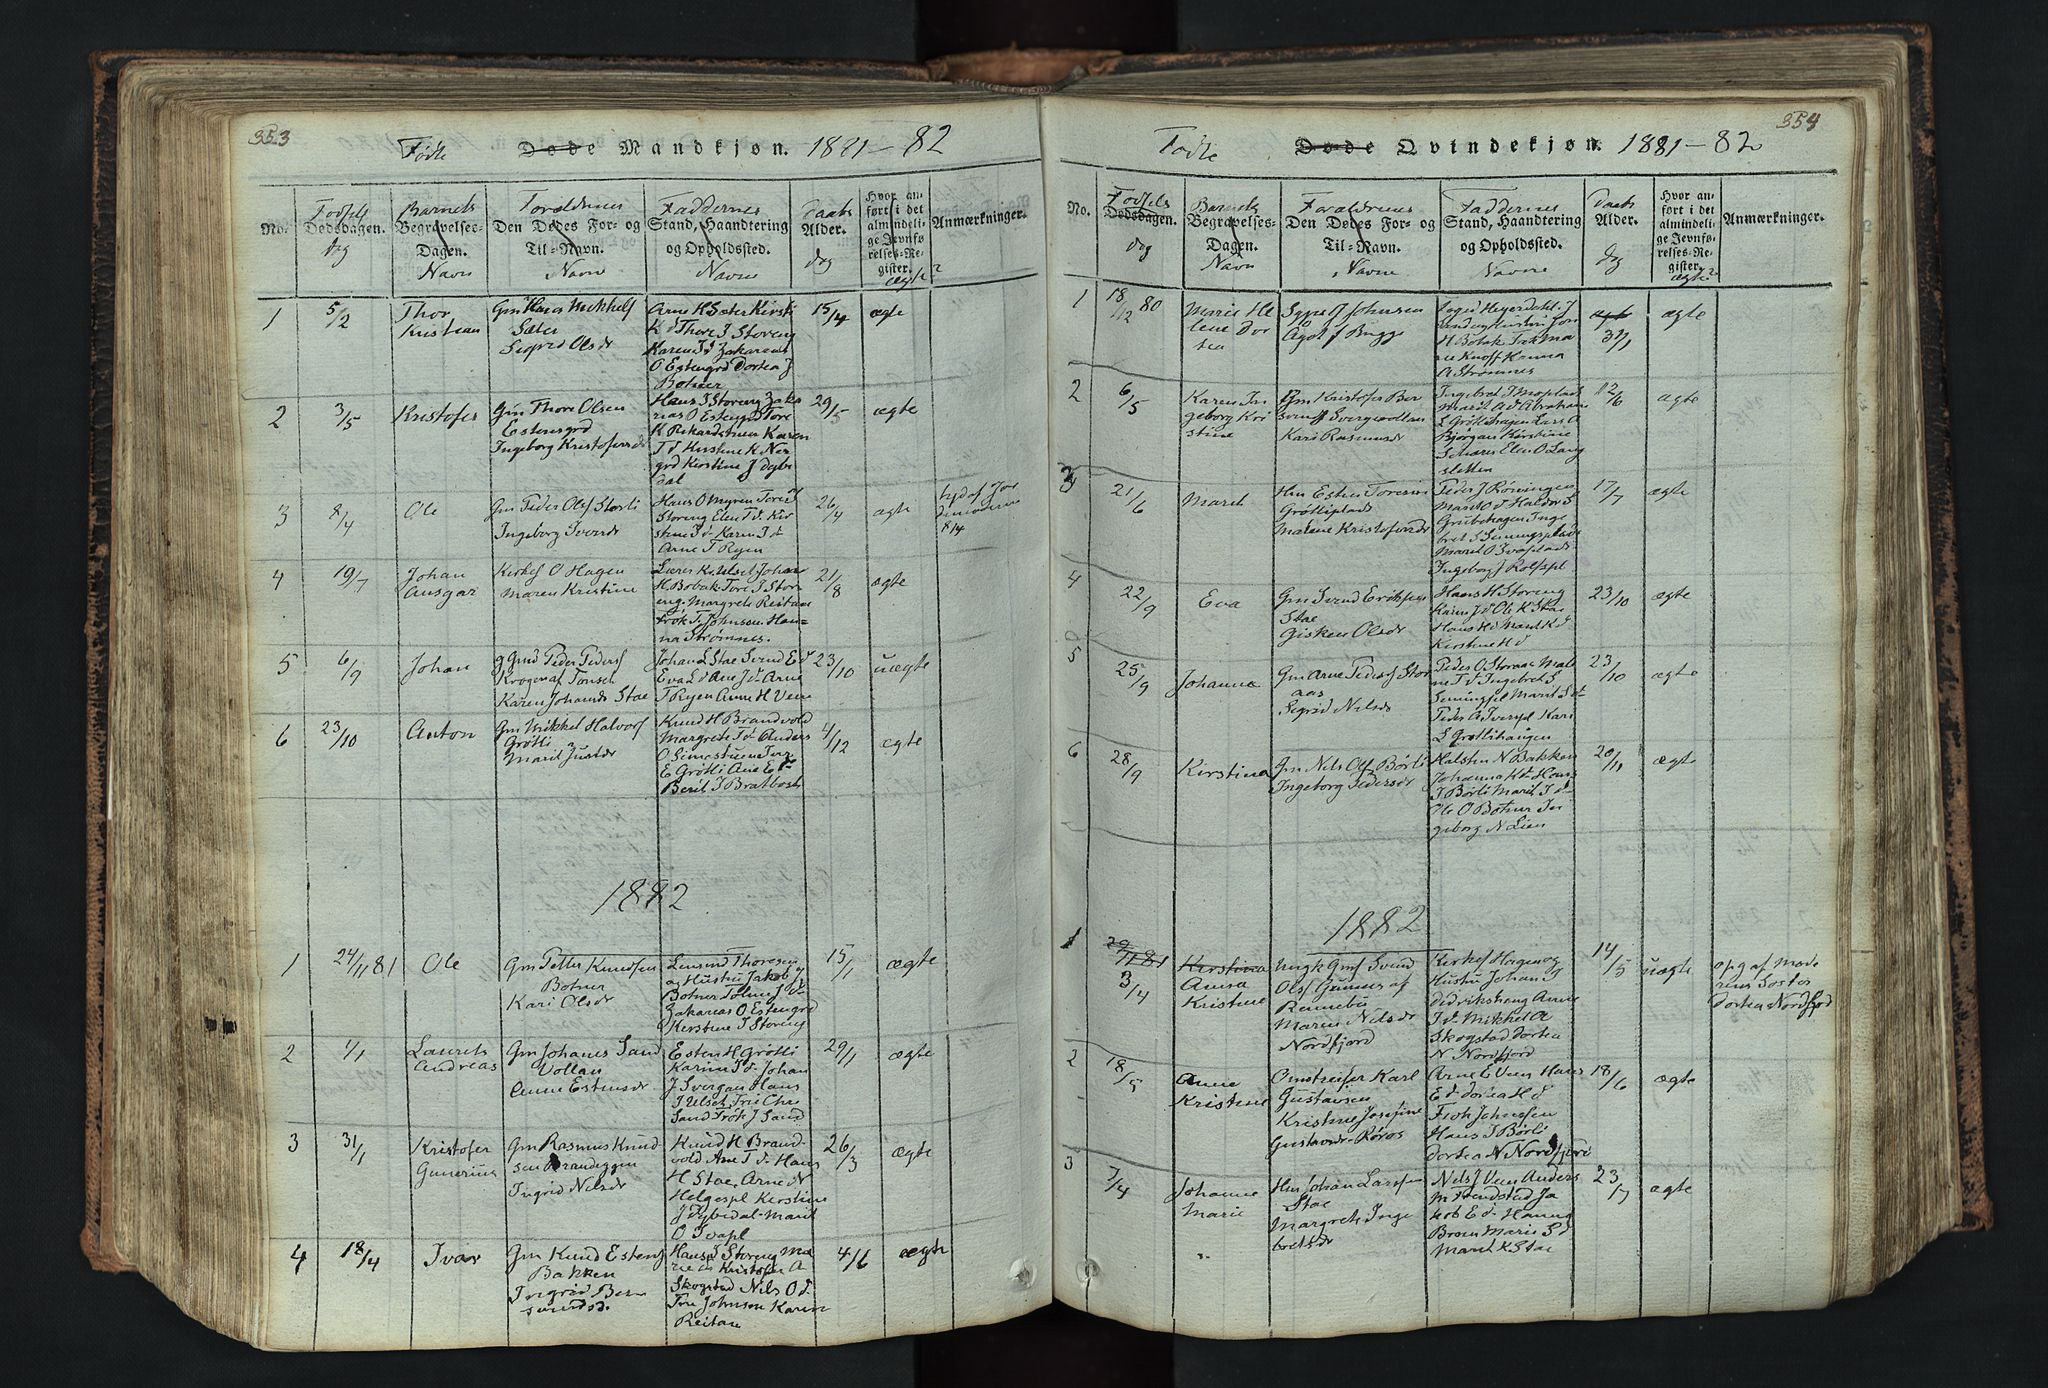 353
Fødte Døde Mandkjøn. 1881-82
No.
Fødsels
Dødsdagen.
dag
Barnets
Begravelses-
Dagen.
Navn
Forældrenes
Den Dødes For- og
Til-Navn.
Navne
Faddernes
Stand, Haandtering
og Opholdssted.
Navne
Daabs
Alder.
dag
Hvor an-
ført i det
almindeli-
ge Jevnfø-
relses-Re-
gister.
ægte?
Anmærkninger.
1
5/2
Thor
Kristian
Gm Hans Mikkels
Sæter
Sigrid Olsdr
Arne H Sæter Kirsti
K d Thore J Storeng
Karen I d Zakarias
O Estengrd Dortea J
Botner
15/4
ægte
2
3/5
Kristofer
Gm Thore Olsen
Estensgrd
Ingeborg Kristofersdr
Hans J Storeng Zaka
rias O Estengrd Tore
K Rikardstuen Karen
T d Kirstine K Nor
grd Kirstine J Dybe
dal
29/5
ægte
3
8/4
Ole
Gm Peder Ols Storli
Ingeborg Iversdr
Hans O Myren Tore J
Storeng Elen T d Kir
stine I d Karen I d
Arne T Ryen
26/4
ægte
hjd af Jor
demoderen
8/4
4
19/7
Johan
Ansgar
Kirkes O Hagen
Maren Kristine
Lærer K Ulset Johan
H Bobak Tore J Stor
eng. Margrete Reitan
Frøk T Johnsen Han-
na Strømnes.
21/8
ægte
5
6/9
Johan
g Gmd Peder Peders
Krogen af Tønset
Karen Johansd Stae
Johan L Stae Svend E d
Eva L d Ane J d Arne
T Ryen Anne H Veen
23/10
uægte
6
23/10
Anton
Gm Mikkel Halvors
Grøtli
Marit Justdr
Knud H Brandvold
Margrete T d Anders
O Simestuene Tor
E Grøtli Ane E d
Beril I Bratbost
4/12
ægte
1882
1
24/11 81
Ole
Gm Petter Knudsen
Botner
Kari Olsdr
Lensmd Thoresen
og Hustru Jakob J
Botner Toline J d
Zakarias O Estengrd
Kirstine I Storeng
15/1
ægte
2
1/1
Laurits
Andreas
Gm Johanes Sand
Vollan
Anne Estensdr
Esten H Grøtli
Karen I d Johan
J Svergan Hans
J Ulset Frie Chrs
Sand Frøk J Sand
29/1
ægte
3
31/1
Kristofer
Gunerius
Gm Rasmus Knud-
sen Brandeggen
Ingrid Nelsdr
Knud H Brand-
vold Ane T d Hans
H Stae Arne N
Helgespl Kirstine
J Dybedal Marit
O Ivapl
26/3
ægte
4
18/4
Ivar
Gm Knud Estens
Bakken
Ingrid Ber
sendsd.
Hans J Storeng Ma
ren Kristofer A
Skogstad Nils O d
Tore Johnsen Karen
Reitan
4/6
ægte
354
Fødte Døde Qvindekjøn. 1881-82
No.
Fødsels
Dødsdagen.
dag
Barnets
Begravelses-
Dagen.
Navn
Forældrenes
Den Dødes For- og
Til-Navn.
Navne
Faddernes
Stand, Haandtering
og Opholdssted.
Navne
Daabs
Alder.
dag
Hvor an-
ført i det
almindeli-
ge Jevnfø-
relses-Re-
gister.
ægte?
Anmærkninger.
1
18/12 80
Marie He
lene Dor
tea
Sygpr J Johnsen
Agot f Bugge
Foged Heyerdahl J
H Bobak
ne Knoff Hanna
A Strømnes
31/1
ægte
2
6/5
Karen In
geborg Kir
stine
Gm Kristofer Ber
svends Svergavollan
Kari Rasmusdr
Ingebret J Moplads
Marit A d Abraham
L Grøtlihagen Lars O
Bjørgan Kirstine
S Moren Elen O Lang
sletten
12/6
ægte
3
21/6
Marit
Hm Esten Toresen
Grøtliplads
Marene Kristofersdr
Peder J Røvingen
Marit O d Haldor S
Grubehagen Inge
bret S Semingsplads
Marit O Ivaplads
Ingeborg J Rolfspl
17/7
ægte
4
22/9
Eva
Gm Svend Eriksen
Stae
Gisken Olsdr
Hans H Storeng
Karen J d Ole K Stae
Hans H d Marit K d
Kirstine H d
23/10
ægte
5
25/9
Johanna
Gm Arne Peders Stor
aas
Sigrid Nelsdr
Peder O Storaas Mali
ne T d Ingebret S
Semingspl Marit S d
Peder A Iverspl Kari
L Grøtlihaugen
23/10
ægte
6
28/9
Kirstina
Gm Nels Ols Børli
Ingeborg Pedersdr
Halsten N Bakken
Johanna K d Hans
J Børli Marit I d
Ole O Botner In
geborg N Lien
20/11
ægte
1882
1
29/11 81
3/4
Kirstina
Anna
Kristine
Ungk Gmf Svend
Ols Gunnes af
Rennebu
Maren Nelsdr
Nordfjord
Kirkes Hagen og
Hustru Johan d
Didriksheng Anne
I d Mikkel A
Skogstad Dortea
N Nordfjord
14/5
uægte
opg af Mode
rens Søster
Dortea Nordfjord
2
18/5
Anne
Kristine
Omstreifer Karl
Gustavsen
Kristine Josefine
Gustavsdr Røros
Arne E Veen Hans
E d Dortea H d
Frøk Johnsen
Hans J Børli
Dortea N Nordfjord
18/6
ægte
3
7/4
Johanne
Marie
Hm Johan Larssen
Stae
Margrete Inge
bretsdr
Nels J Veen Anders
M Trondstad Ja
kob E d Hanna
Broen Marie S d
Marit K Stae
23/7
ægte